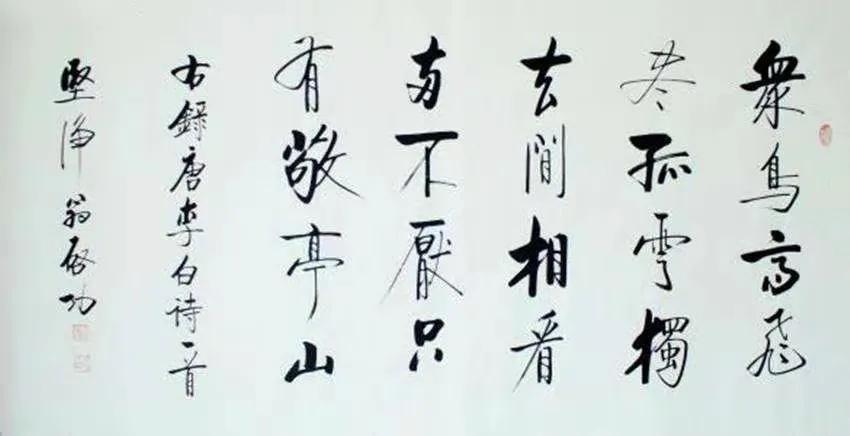 衆鳥高飛
尽孤雲獨
去閒相看
兩不厭只
有敬亭山
右錄唐李白诗一首
堅淨翁啓功